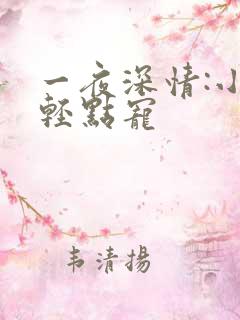 一夜深情:小
輕點寵
韦清揚